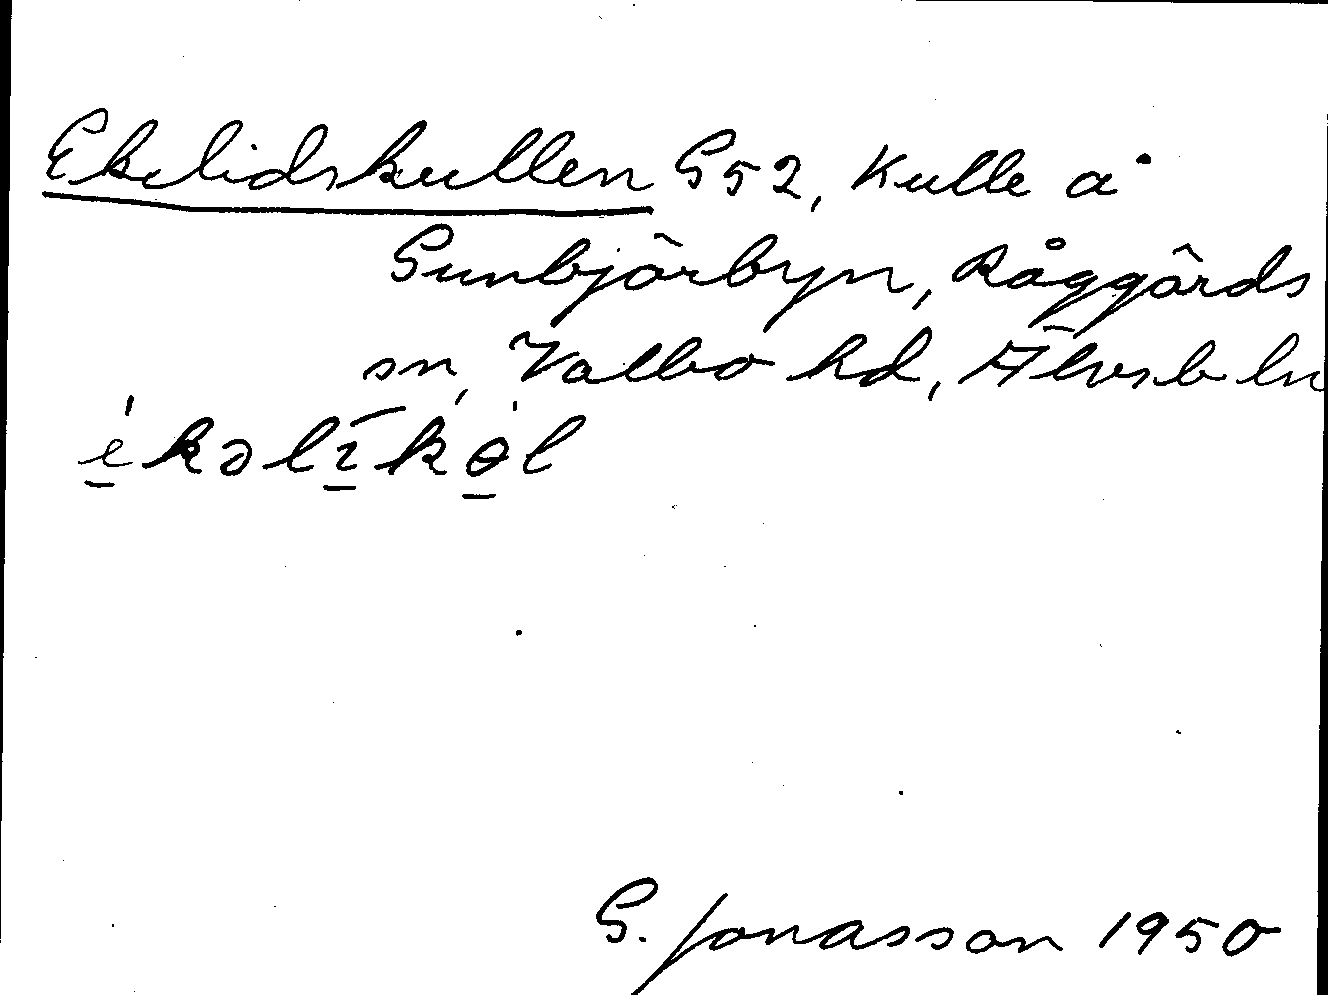 Ekelidskullen G52, Kulle å
Gunbjörbyn, Råggärds
sn, Valbo hd, Älvsb ln
e̱̍kəlī̱kɵ̱̍l
G. Jonasson 1950